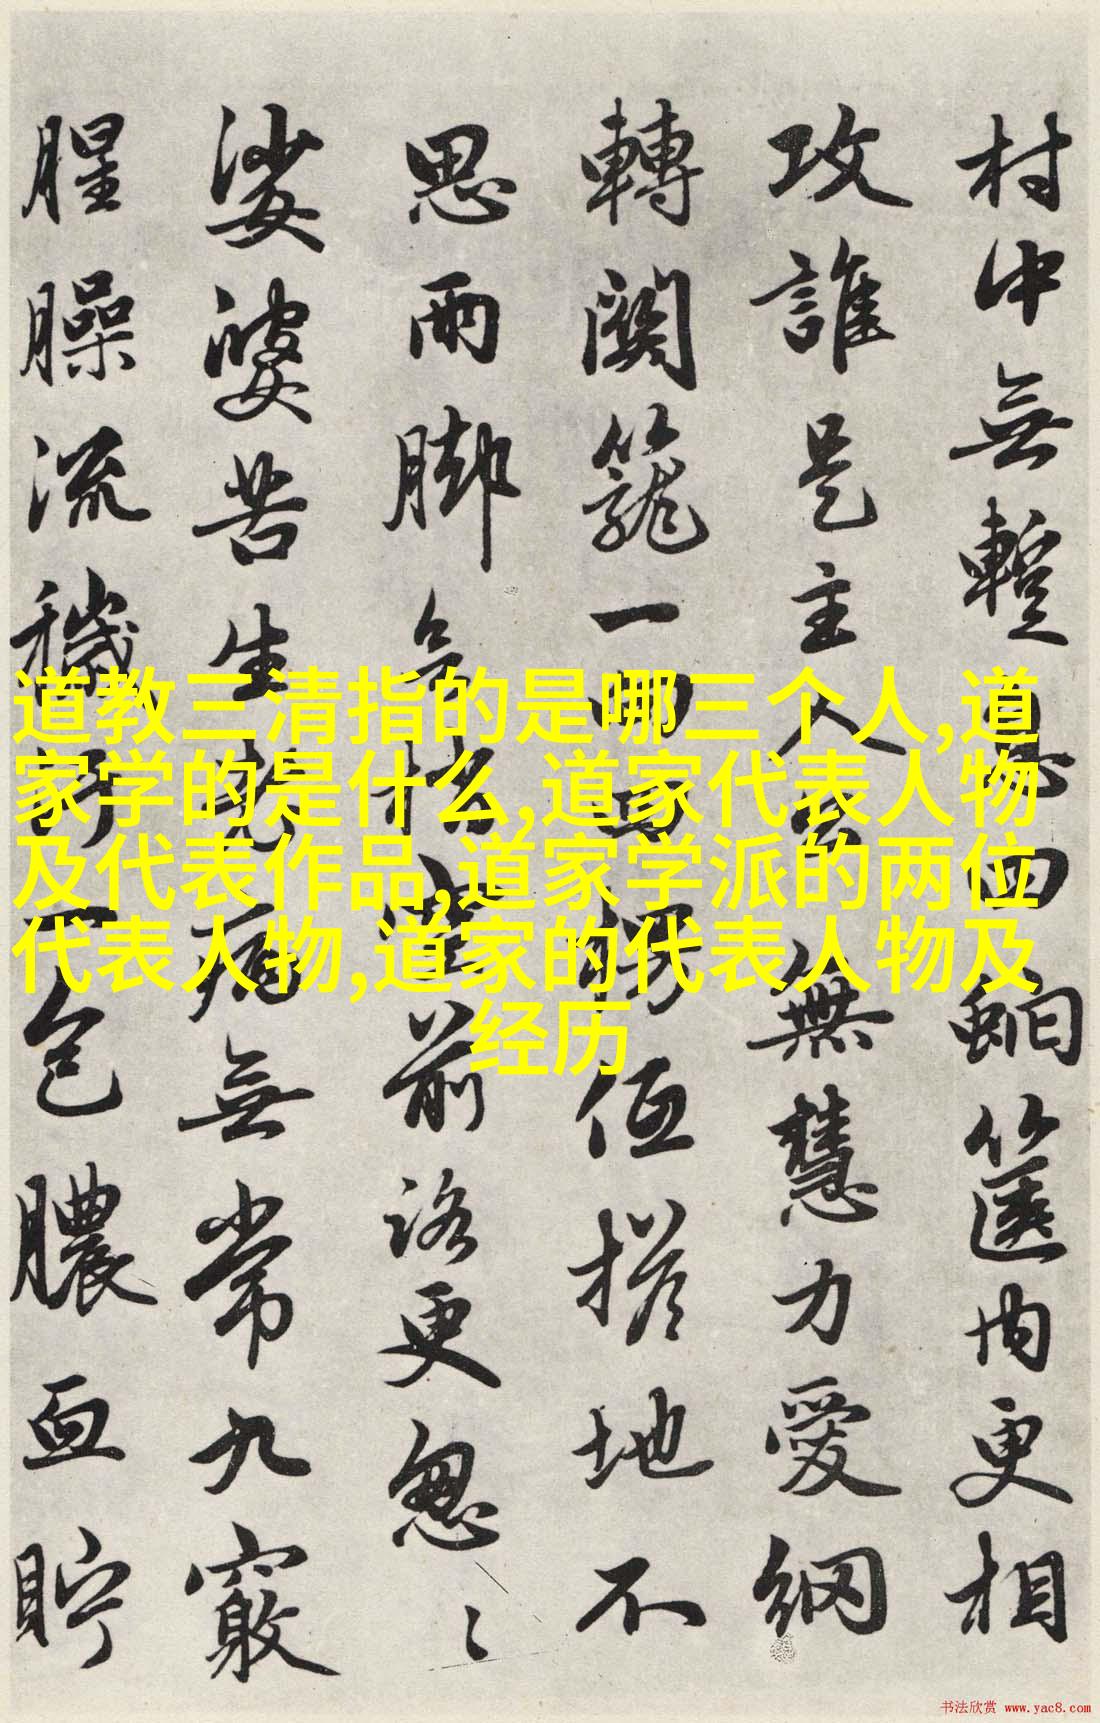 村中無蹔息四蛇篋內更相
攻誰是主人 無慧力愛網
轉關籠一 地不
思雨脚 前路更忽〻
娑婆苦生 病無常九竅
腥臊流穢 一包膿血貯
道教三清指的是哪三个人,道
家学的是什么,道家代表人物
及代表作品,道家学派的两位
代表人物,道家的代表人物及
经历
书法欣赏 www.yac8.com